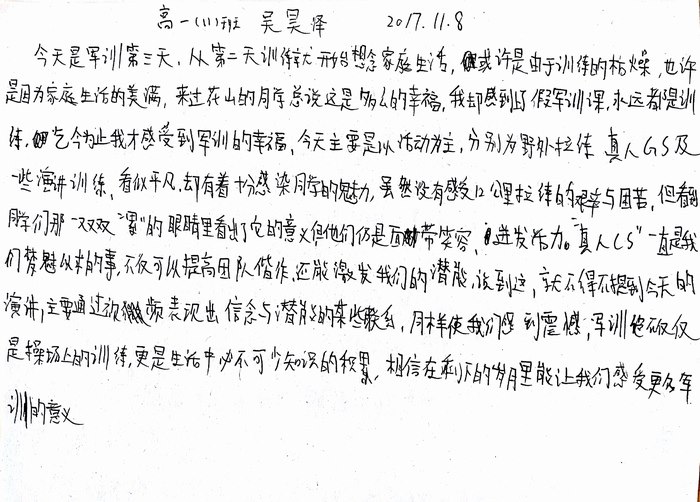 高一(1)班 吴昊泽 2017.11.8
今天是军训第三天，从第二天训练就开始想念家庭生活，或许是由于训练的枯燥，也许
是因为家庭生活的美满，来过在山的同学总说这是多么的幸福，我却感到假军训课，永远都是训
练，迄今为止我才感受到军训的幸福，今天主要是以活动为主，分别为野外拉练 真人GS及
一些演讲训练，看似平凡，却有着十分感染同学的魅力，虽然没有感受12公里拉练的艰辛与困苦，但看
同学们那一双双"累"的眼睛里看出了它的意义但他们仍是面带笑容，迸发活力。"真人CS"一直是我
们梦魅以求的事，不仅可以提高团队偕作，还能激发我们的潜能，谈到这，就不得不提到今天的
演讲，主要通过视频表现出信念与潜能的某些联系，同样使我们感到震撼，军训绝不仅仅
是操场上的训练，更是生活中必不可少知识的积累，相信在剩下的岁月里能让我们感受更多军
训的意义